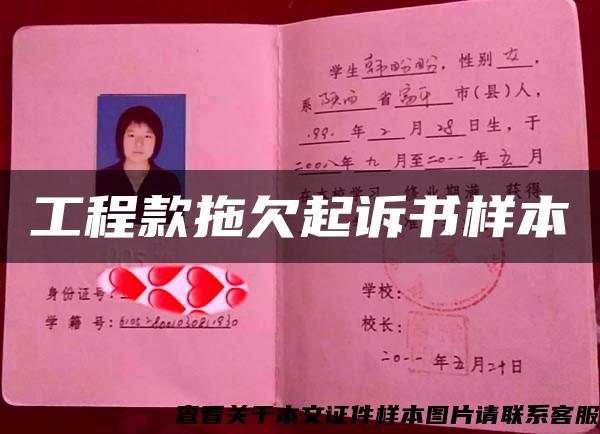 学生韩盼盼，性别女，
系陕西省富平市(县)人，
年2月28日生，于
二00八年九月至二0一一年五月
在本校学习，修业期满，获得
工程款拖欠起诉书样本
身份证号：
学籍号：
学校：
校长：
二0一一年五月二十日
查看关于本文证件样本图片请联系客服